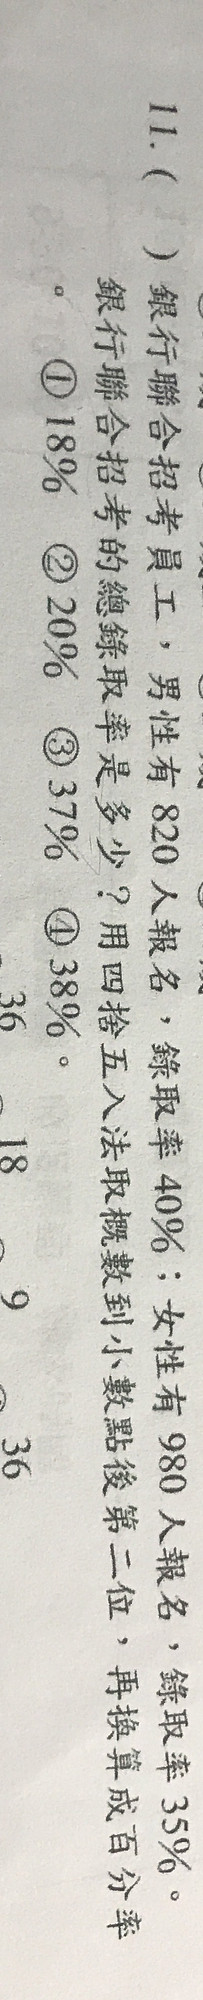 11. (　) 銀行聯合招考員工，男性有820人報名，錄取率40%；女性有980人報名，錄取率35%。
銀行聯合招考的總錄取率是多少？用四捨五入法取概數到小數點後第二位，再換算成百分率
。 ①18% ②20% ③37% ④38%。
36 18 9 36